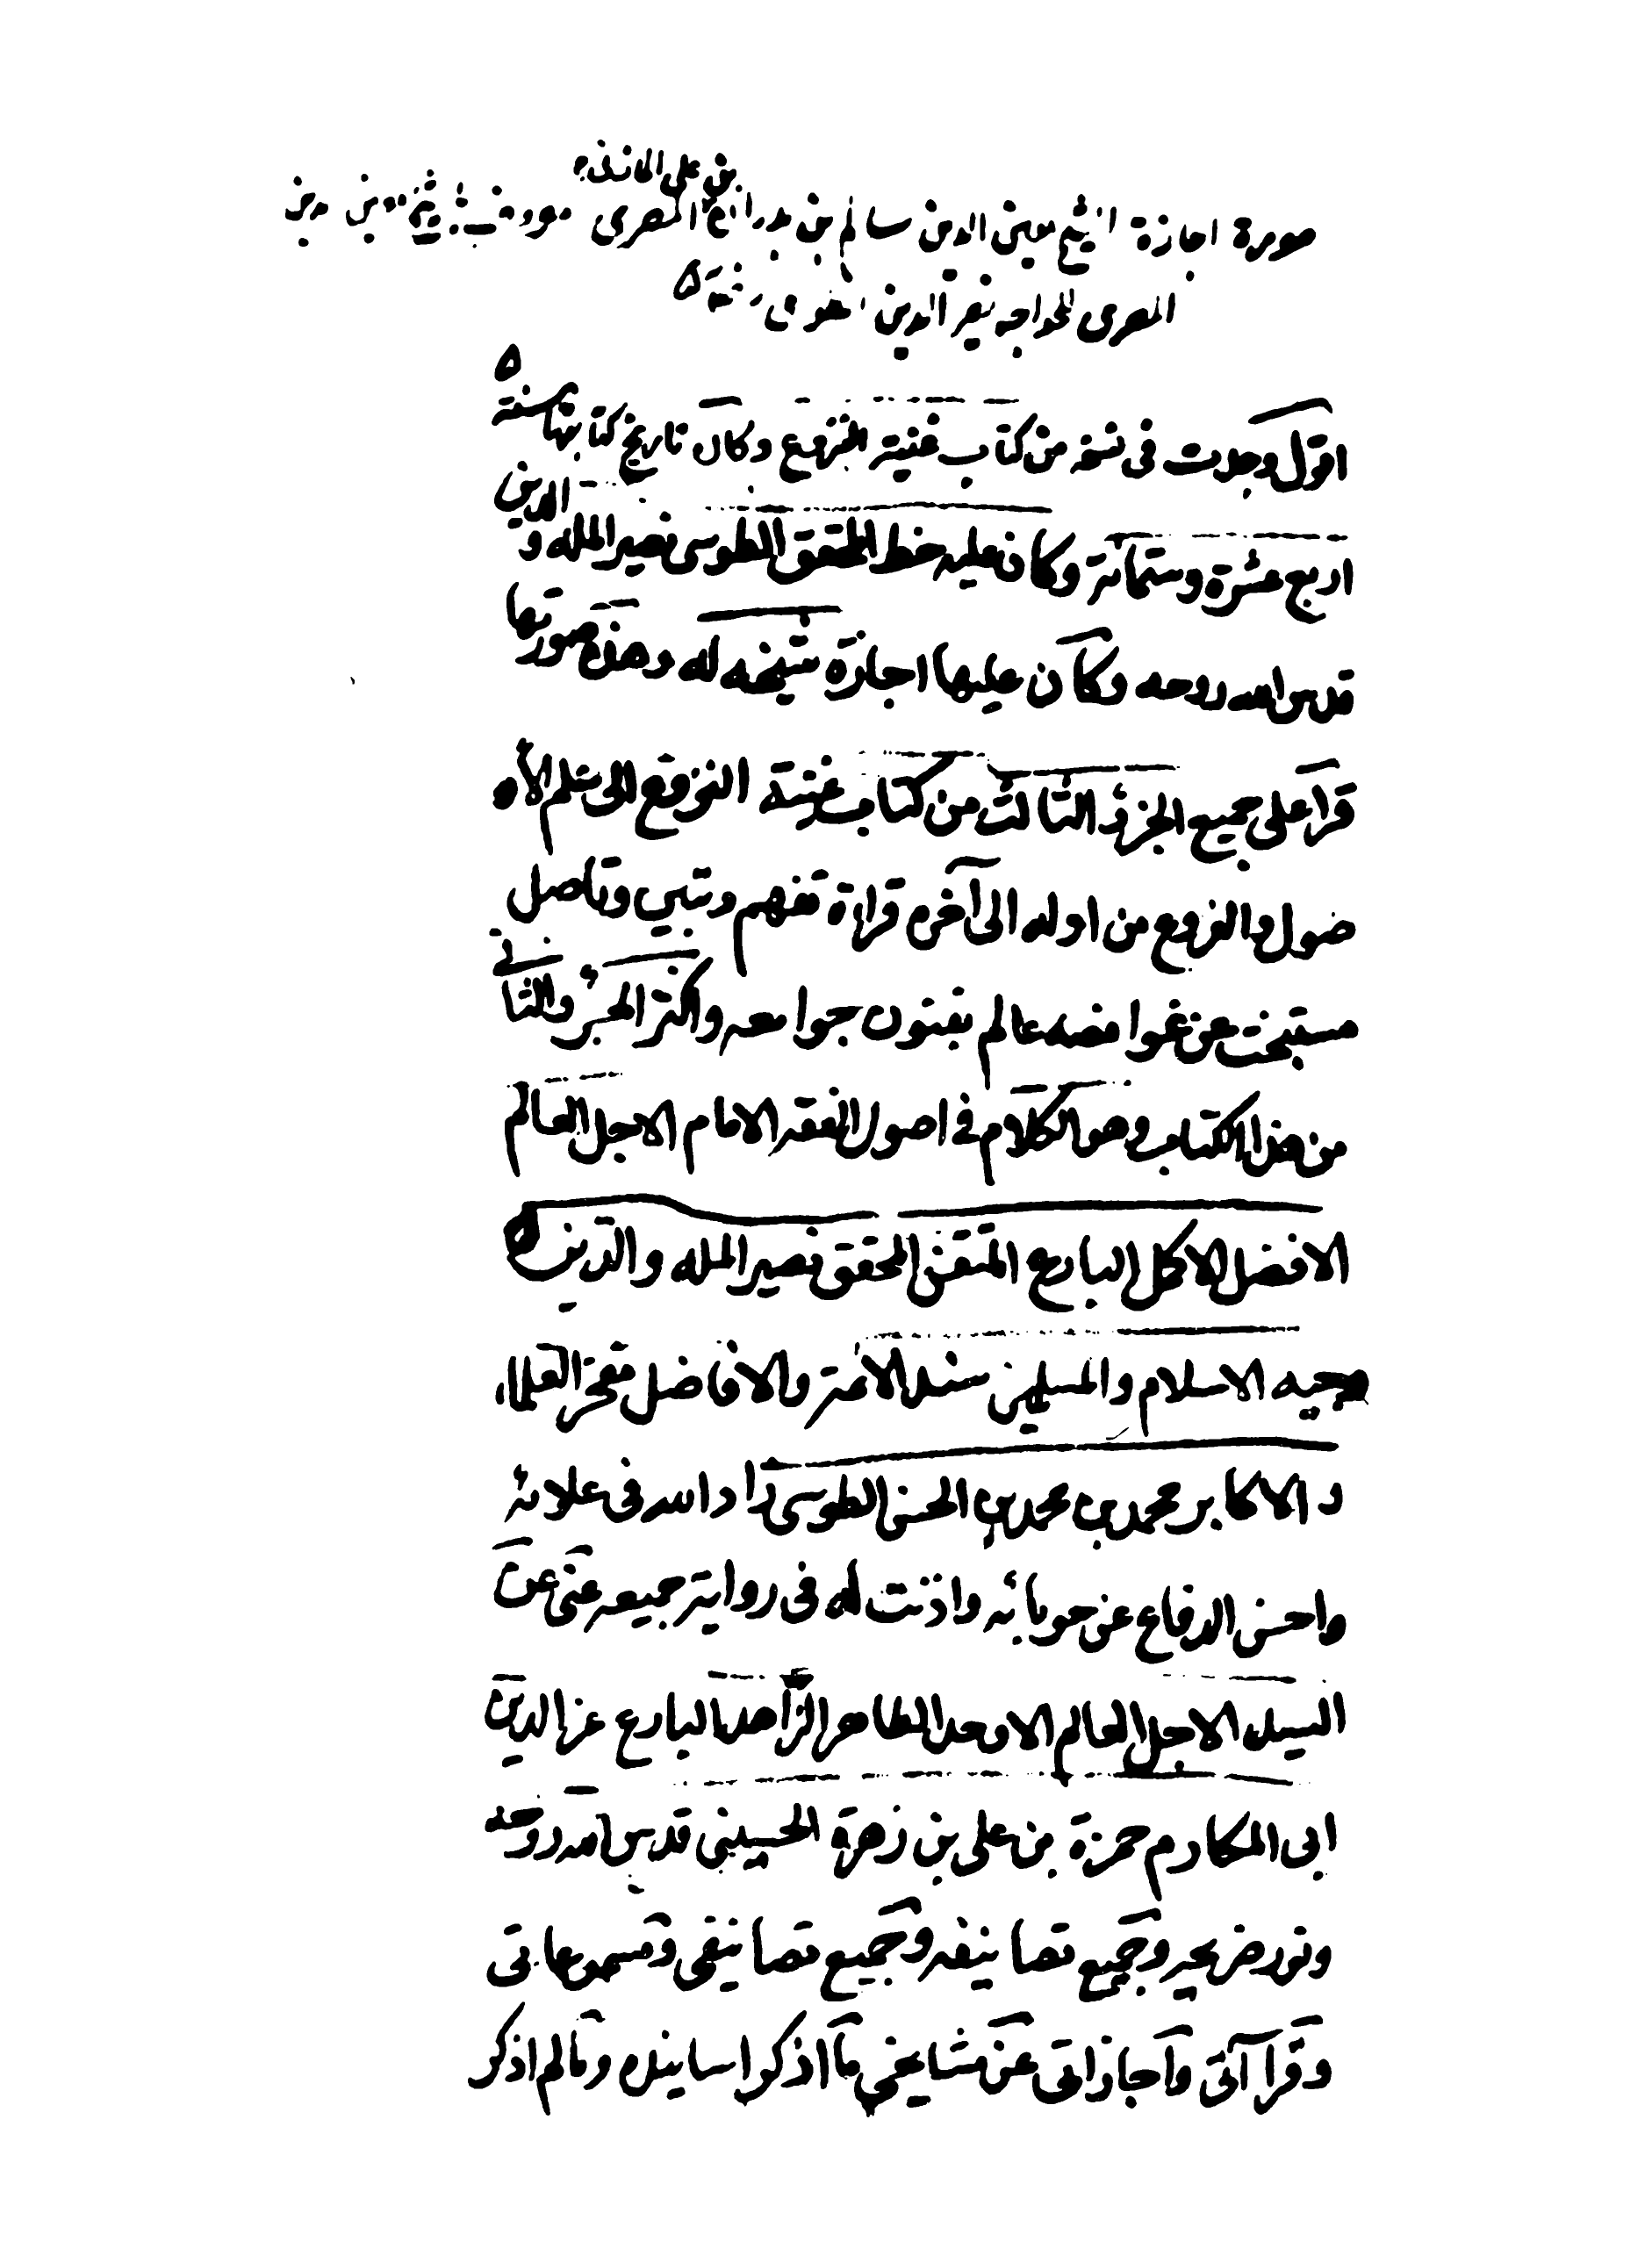 بن علي المازني
صورة اجازة الشيخ معين الدين سالم بن بدران المصري معروف بشيخ معين الدين
المصري للخواجه نصير الدين الطوسي
اقول وجدت في نسخة من كتاب غنية النزوع وكان تاريخ كتابتها سنة
اربع عشرة وستمائة وكان عليه خط المحقق الطوسي نصير الملة و الدين
قدس الله روحه وكان عليها اجازة شيخه له وهذه صورتها
قرا علي جميع الجزء الثالث من كتاب غنية النزوع الى علم الأ
صول والفروع من اوله الى آخره قراءة تفهم وتبين وتاصل
مستبحث عن غوامضه عالم بفنون جوامعه واكثر الجزء والثاني
من هذا الكتاب وهو الكلام في اصول الفقه الامام الاجل العالم
الافضل الاكمل البارع المتقن المحقق نصير الملة والدين
وجيه الاسلام والمسلمين سند الائمة والافاضل مفخر العلماء
و الاكابر محمد بن محمد بن الحسن الطوسي زاد الله في علائه
واحسن الدفاع عن حوبائه واذنت له في رواية جميعه عني عن
السيد الاجل العالم الاوحد الطاهر الزاهد البارع عز الدين
ابي المكارم حمزة بن علي بن زهرة الحسيني قدس الله روحه
ونور ضريحه وجميع تصانيفه وجميع تصانيفي ومسموعاتي
وقرآآتي واجازاتي عن مشايخي ما اذكر اسانيده وما لم اذكر